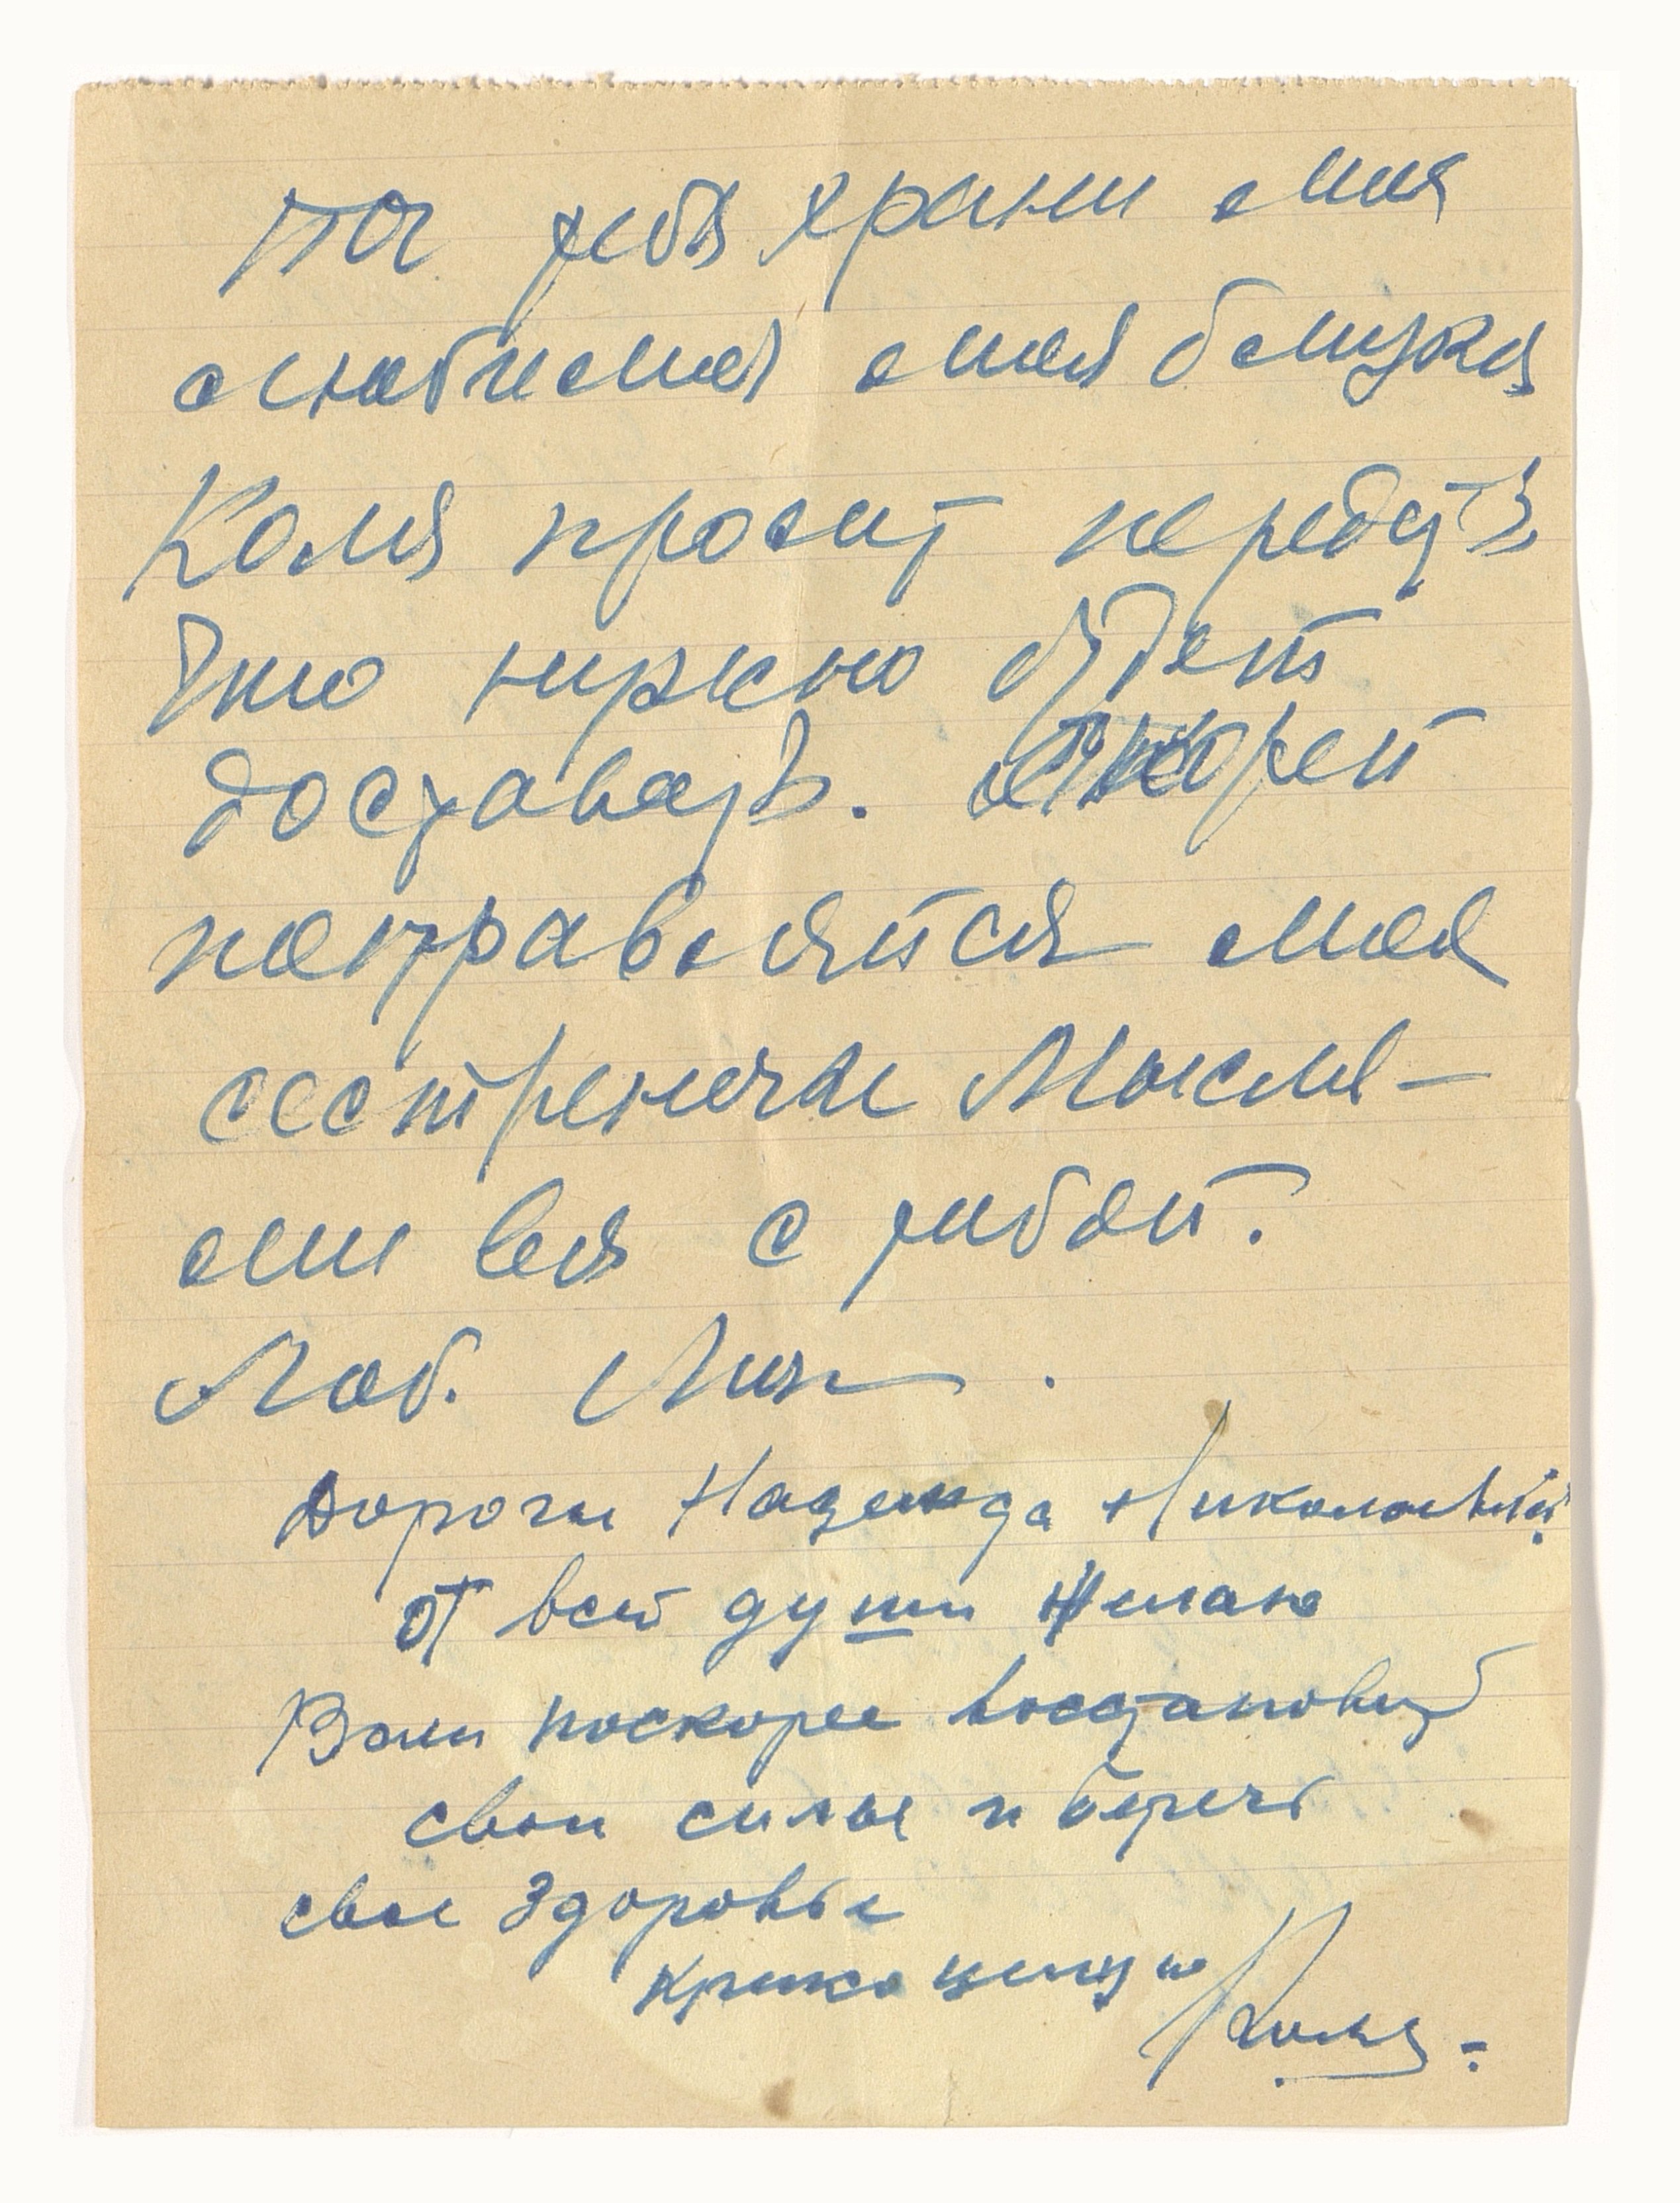 тебя храни моя
любимая моя
Коля просит передать
что нужно будет
доставать. скорей
поправляйся моя
сестреночка Мысля-
ми вся с тобой.
Люб.
Дорогая Надежда Николаевна
от всей души желаю
Вам поскорее восстановить
свои силы и беречь
свое здоровье
Крепко целую
Коля.